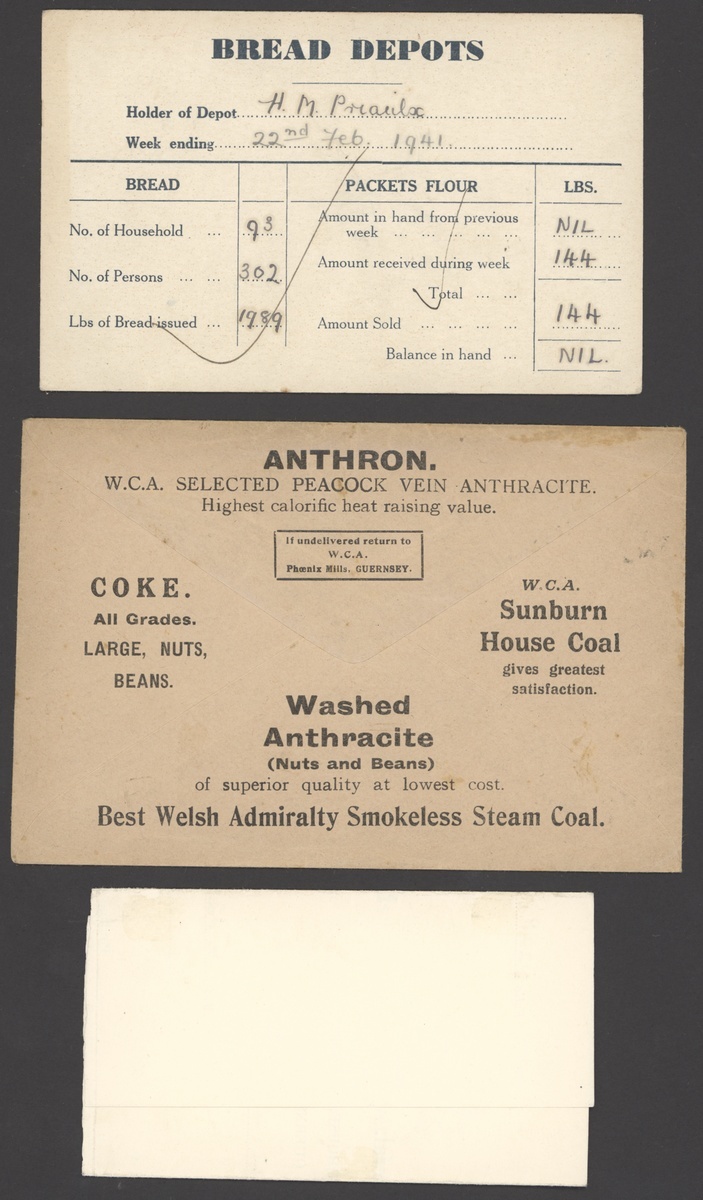 BREAD DEPOTS
Holder of Depot H. M. Priaulx
Week ending 22nd Feb. 1941.
BREAD
No. of Household ... 93
No. of Persons ... ... 302
Lbs of Bread issued ... 1989
PACKETS FLOUR LBS.
Amount in hand from previous
week ... ... ... ... ... NIL
Amount received during week 144
Total ... ...
Amount Sold ... ... ... ... 144
Balance in hand ... NIL.
ANTHRON.
W.C.A. SELECTED PEACOCK VEIN ANTHRACITE.
Highest calorific heat raising value.
If undelivered return to
W.C.A.
Phœnix Mills, GUERNSEY.
COKE.
All Grades.
LARGE, NUTS,
BEANS.
W.C.A.
Sunburn
House Coal
gives greatest
satisfaction.
Washed
Anthracite
(Nuts and Beans)
of superior quality at lowest cost.
Best Welsh Admiralty Smokeless Steam Coal.